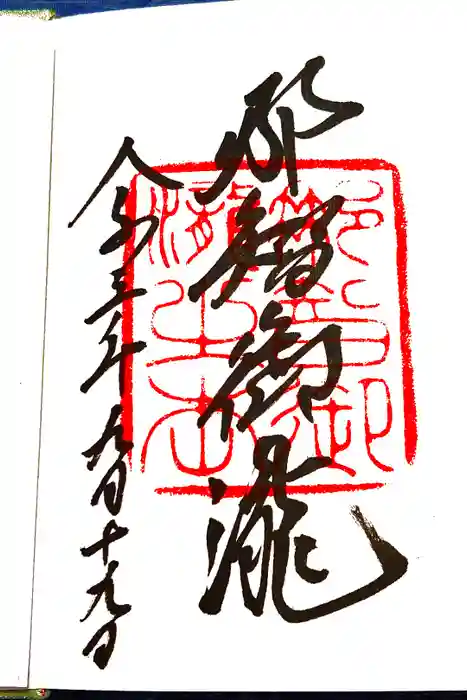 那智御滝
令和三年九月十九日